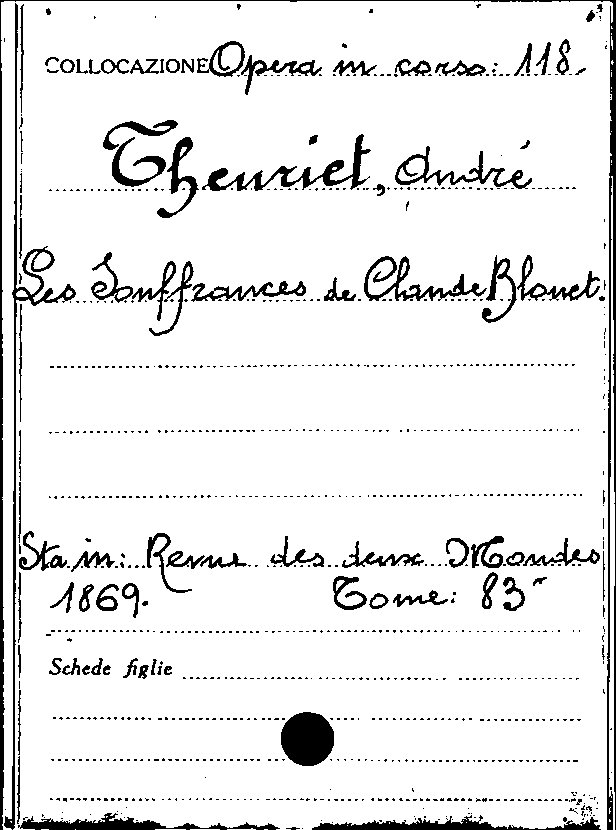 COLLOCAZIONE Opera in corso: 118.
Theuriet, André
Les Souffrances de Claude Blouet.
Sta in: Revue des deux Mondes
1869. Tome: 83
Schede figlie